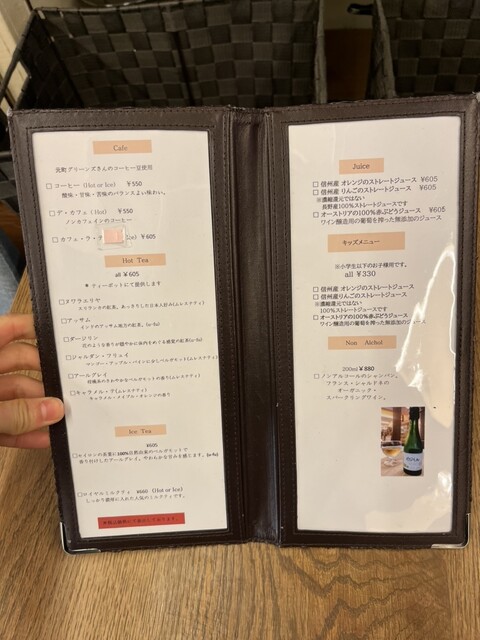 Cafe
元町グリーンズさんのコーヒー豆使用
□ コーヒー (Hot or Ice) ¥550
酸味・甘味・苦味のバランスよい味わい。
□ デ・カフェ (Hot) ¥550
ノンカフェインのコーヒー
□ カフェ・ラ・テ Ice) ¥605
Hot Tea
all ¥605
＊ティーポットにて提供します
□ ヌワラエリヤ
□ アッサム
インドのアッサム地方の紅茶。
□ ダージリン
□ ジャルダン・フリュイ
□ アールグレイ
□ キャラメル・ティ
キャラメル・メイプル・オレンジの香り
Ice Tea
¥605
□ セイロンの茶葉に100%自然由来のベルガモットで
香り付けしたアールグレイ。やわらかな甘みを感じます。
□ ロイヤルミルクティ ¥660 (Hot or Ice)
しっかり濃厚に入れた人気のミルクティです。
Juice
□ 信州産 オレンジのストレートジュース ¥605
□ 信州産 りんごのストレートジュース ¥605
※濃縮還元ではない
長野産100%ストレートジュースです
□ オーストリアの100%赤ぶどうジュース ¥605
ワイン醸造用の葡萄を搾った無添加のジュース
キッズメニュー
※小学生以下のお子様用です。
all ¥330
□ 信州産 オレンジのストレートジュース
□ 信州産りんごのストレートジュース
※濃縮還元ではない
100%ストレートジュースです
□ オーストリアの100%赤ぶどうジュース
ワイン醸造用の葡萄を搾った無添加のジュース
Non Alchol
200ml ¥880
□ ノンアルコールのシャンパン。
フランス・シャルドネの
オーガニック・
スパークリングワイン。